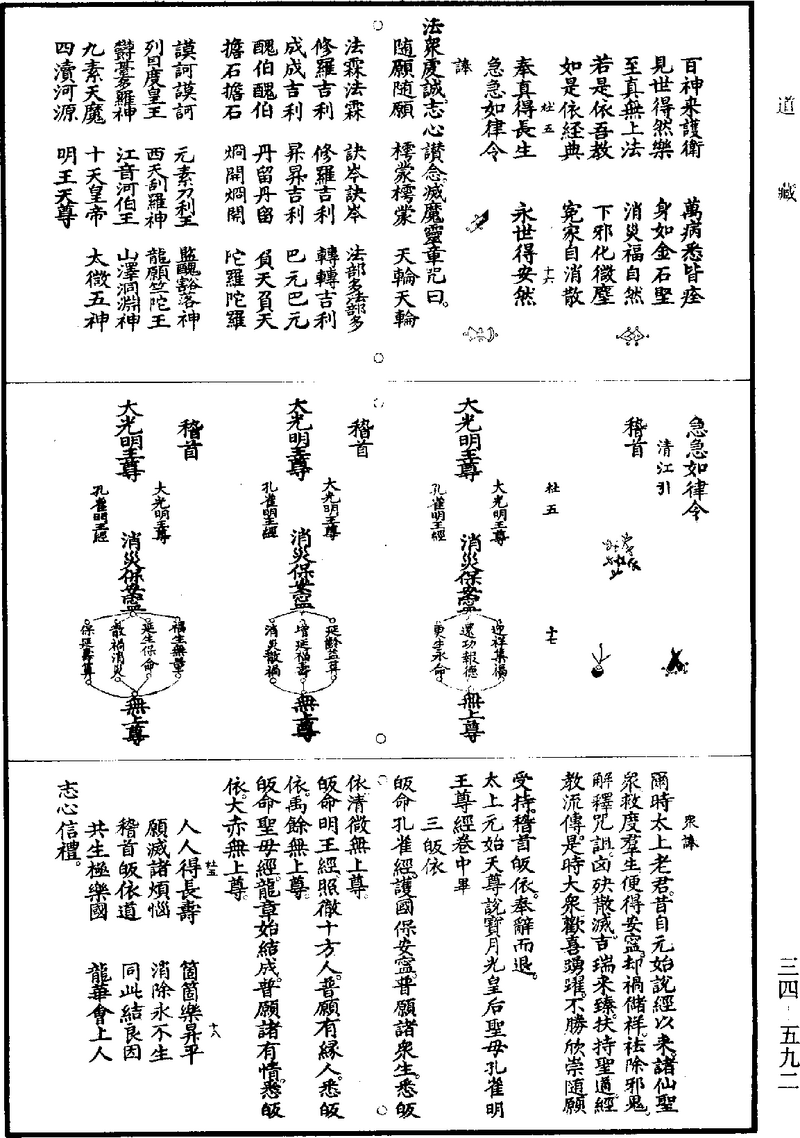 道藏
百神來護衛 萬病悉皆痊
見世得然樂 身如金石堅
至真無上法 消災福自然
若是依吾教 下邪化微塵
如是依經典 冤家自消散
杜五 十六
奉真得長生 永世得安然
急急如律令
誦
法衆虔誠志心讚念滅魔靈章咒曰。
隨願隨願 樗蒙樗蒙 天輪天輪
法霖法霖 訣岺訣岺 法部多法部多
修羅吉利 修羅吉利 轉轉吉利
成成吉利 昇昇吉利 巴元巴元
醜伯醜伯 丹留丹留 負天負天
擔石擔石 烱閗烱閗 陀羅陀羅
謨訶謨訶 元素刀利王 監醜豁落神
列曰度皇王 西天刮羅神 龍願竺陀王
欝臺雺羅神 江音河伯王 山澤洞淵神
九素天魔 十天皇帝 太微五神
四瀆河源 明王天尊
急急如律令
清江引
稽首
杜五 十七
大光明王尊
大光明王尊
孔雀明王經
消災保安寧
迎祥集福
還功報德
更生永命
無上尊
稽首
大光明王尊
大光明王尊
孔雀明王經
消災保安寧
延齡益算
增延福壽
消災散禍
無上尊
稽首
大光明王尊
大光明王尊
孔雀明王經
消災保安寧
福生無量
延生保命
散禍消災
保延壽算
無上尊
衆誦
爾時太上老君。昔自元始說經以來。諸仙聖
衆救度羣生便得安寧。却禍儲祥。祛除邪鬼。
解釋咒詛。凶殃散滅。吉瑞來臻。扶持聖道。經
教流傳。是時大衆。歡喜踴躍。不勝欣崇隨願
受持。稽首皈依。奉辭而退。
太上元始天尊說寶月光皇后聖母孔雀明
王尊經卷中畢
三皈依
皈命孔雀經。護國保安寧。普願諸衆生。悉皈
依清微無上尊。
皈命明王經。照徹十方人。普願有緣人。悉皈
依。禹餘無上尊。
皈命聖母經。龍章始結成。普願諸有情。悉皈
依。大赤無上尊。
杜五 十八
人人得長壽 箇箇樂昇平
願滅諸煩惱 消除永不生
稽首皈依道 同此結良因
共生極樂國 龍華會上人
志心信禮。
三四-五九二